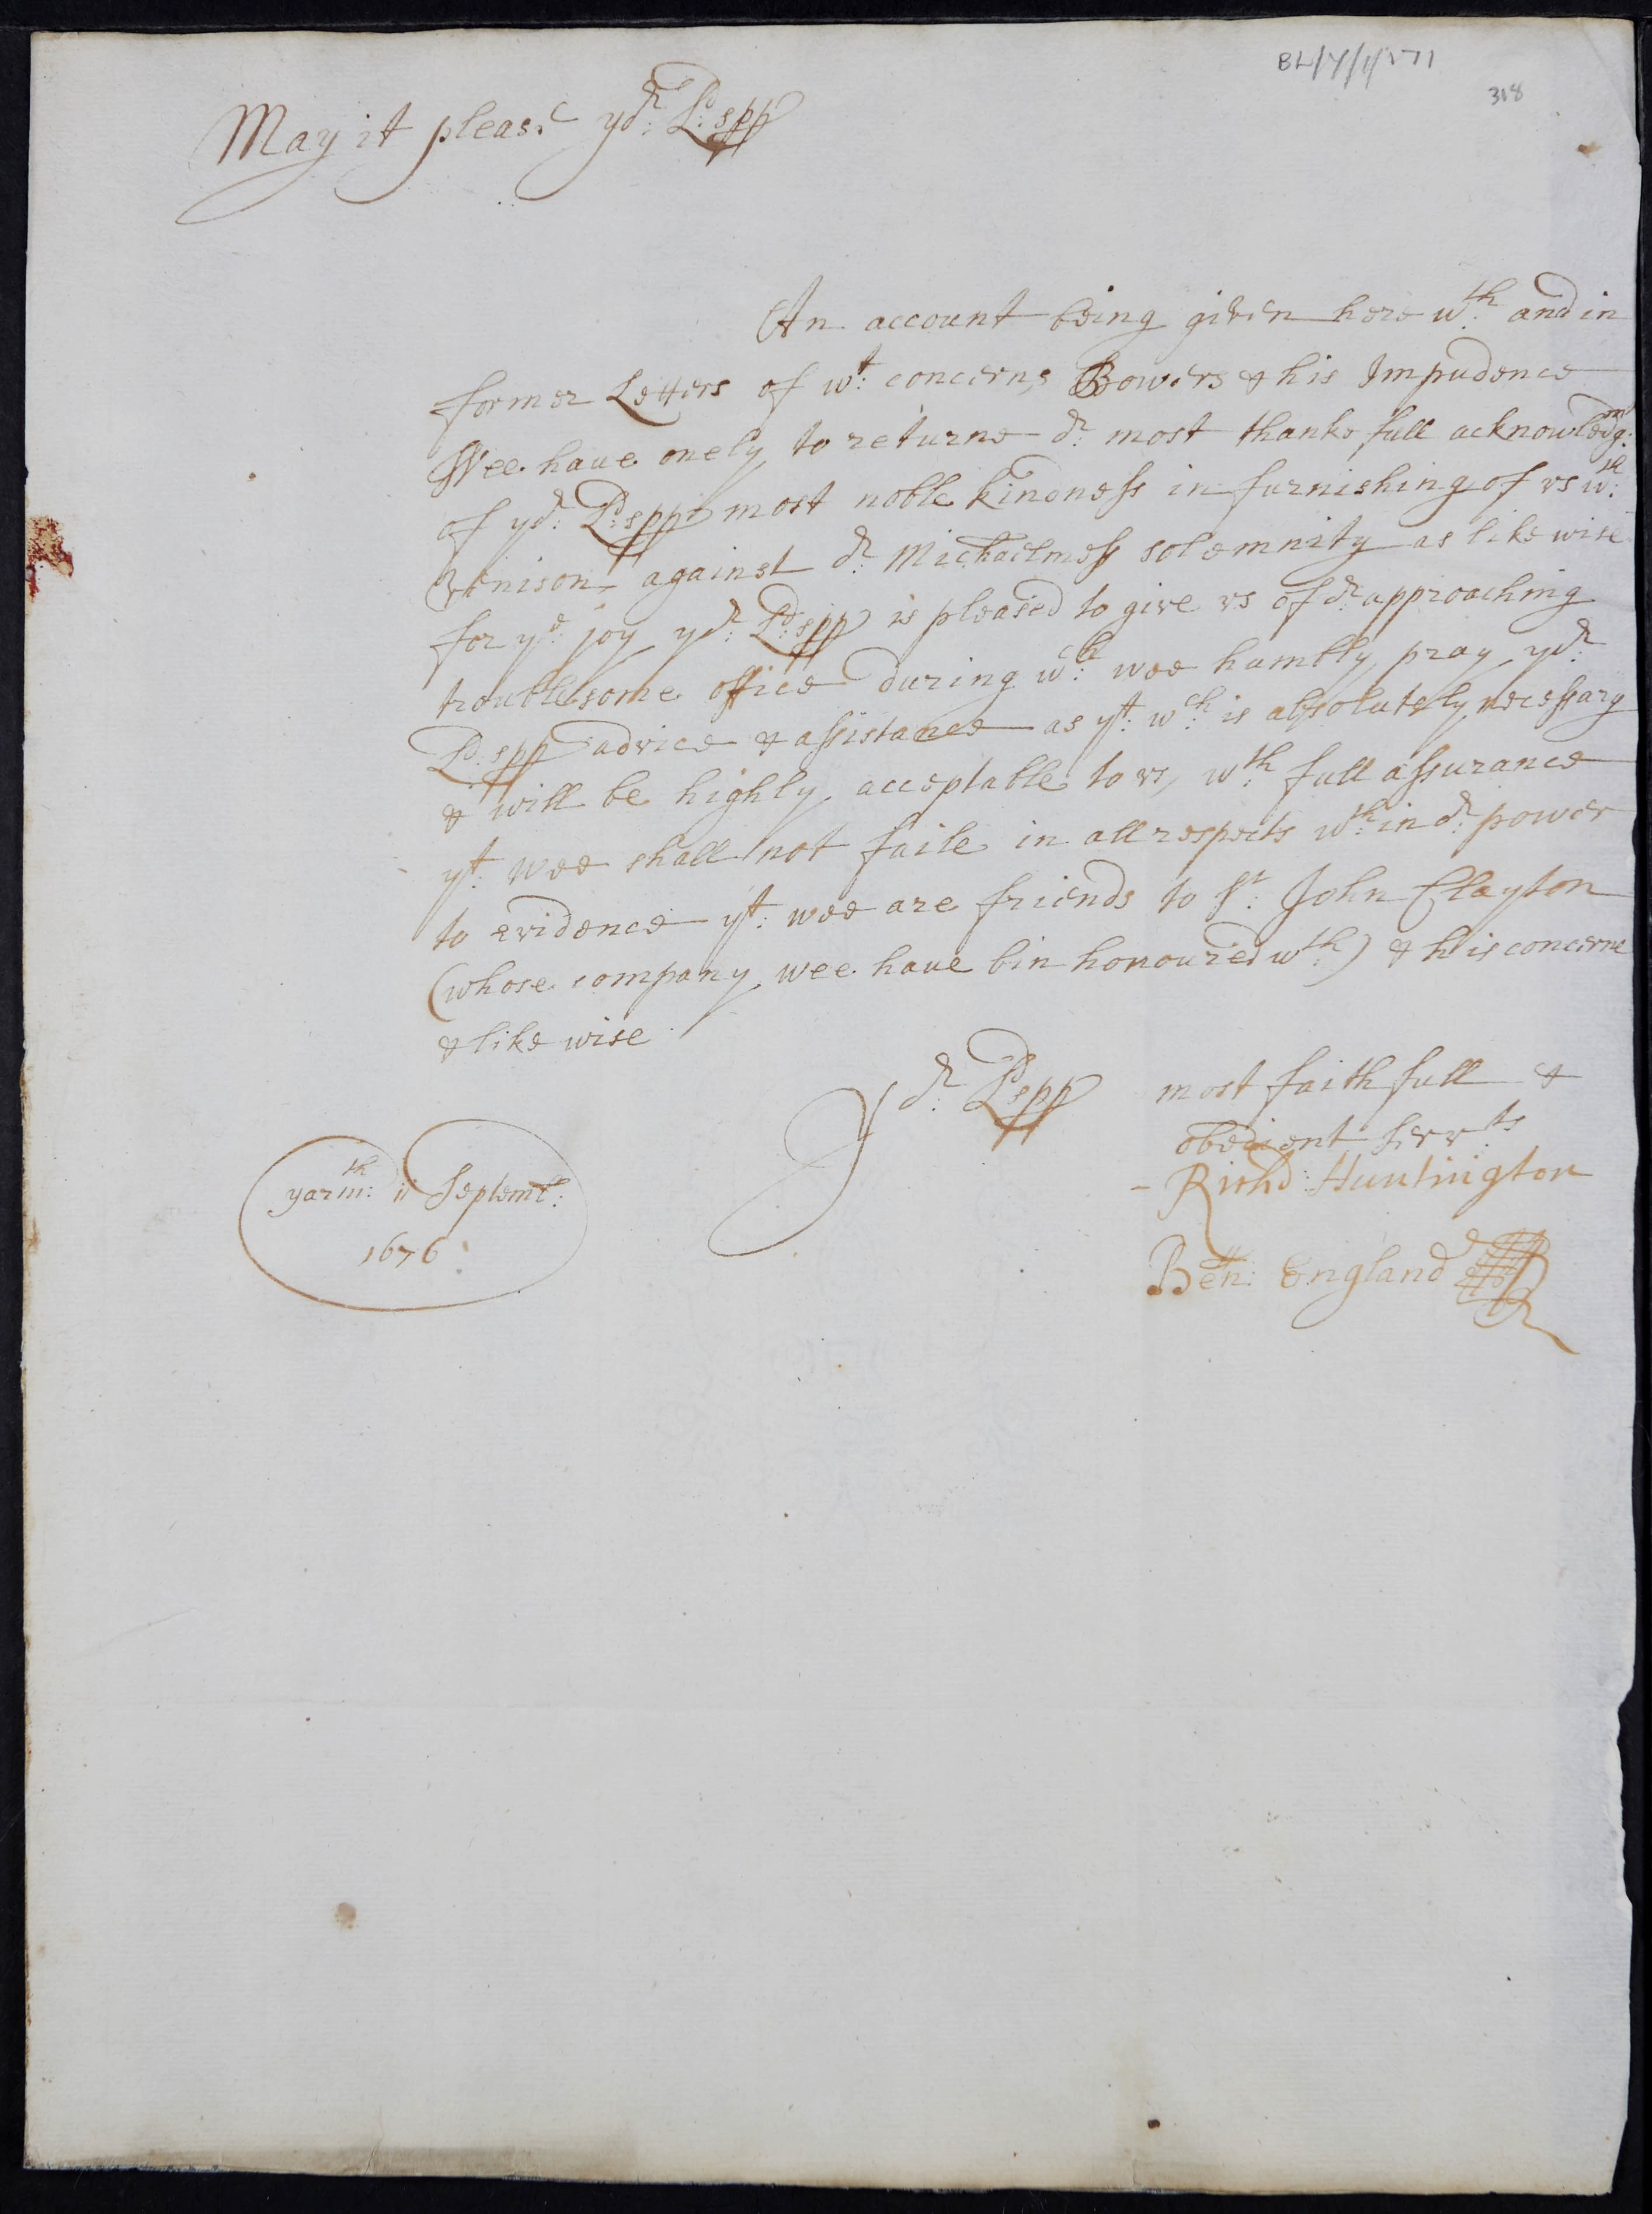 BL/Y/1/171
318
May it please yor: Ldspp
An account being given here wth: and in
former Letters of wt: concerns Bowers & his Impudence
Wee have onely to returne or: most thankefull acknowledgm:
of yor: Ldspps most noble kindness in furnishing of vs wth:
venison against or: Michaelmess solemnity as likewise
for ye: joy yor: Ldspp is pleased to give vs of or: approaching
troublesome office during wch: wee humbly pray yor:
Ld:spp advice & assistance as yt: wch: is absolutely necessary
& will be highly acceptable to vs, wth: full assurance
yt: wee shall not faile in all respects wth:in or: power
to evidence yt: wee are friends to Sr: John Clayton
(whose company wee have bin honoured wth:) & his concerne
& likewise
Yor: Ldspp most faithfull &
obedient servts
Yarmth: 11 Septembr:
1676
Richd: Huntington
Ben: England